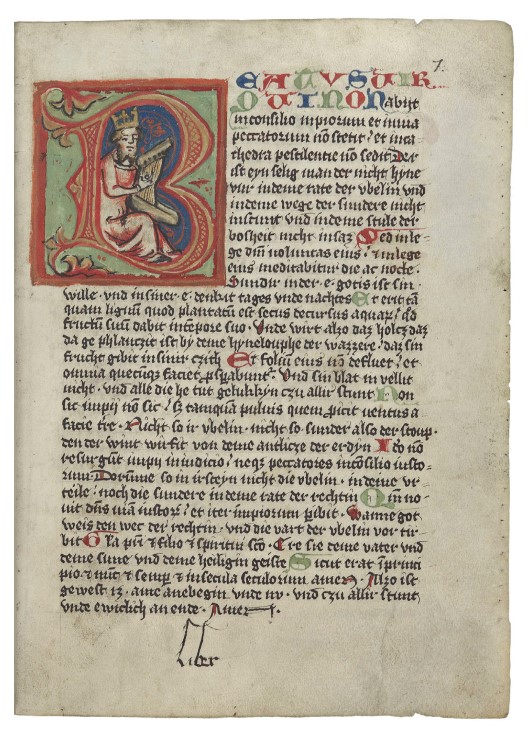 7
BEATUS VIR
QVI NON abijt
inconsilio inpiorum et inuia
peccatorum nō stetit / et inca-
thedra pestilentie nō sedit Der
ist eyn selig man der nicht hyne
vur indeme rate der vbelin vnd
indeme wege der sundere nicht
instunt vnd indeme stule der
bosheit nicht insaz Sed inle-
ge dn̄i voluntas eius / et inlege
eius meditabitur die ac nocte.
Sundir inder · e · gotis ist sin
wille · vnd insiner · e · denkit tages vnde nachtes Et erit tā
quam lignū quod plantatū est secus decursus aquaꝝ / qd
fructū suū dabit intēpore suo · Vnde wirt alzo daz holcz daz
da ge phlanczit ist by deme hyneloufhe der wazzere / daz sin
frucht gibit in sinir czith Et foliū eius nō defluet / et
omnia quecūqꝫ faciet ꝓsꝑabunt᷑ · Vnd sin blat in vellit
nicht · vnd alle die he tut gelukkyn czu allir stunt Non
sic impij nō sic / sꝫ tanquā puluis quem ꝓicit uentus a
facie tr̄e · Nicht so ir vbelin · nicht so · sunder also der stoup ·
den der wint wirfit von deme antlicze der erdyn Ideo nō
resurgūt impij iniudicio / neqꝫ peccatores incōsilio iusto-
rum Dorūme so in irsteyn nicht die vbelin · in deme vr
teile / noch die sundere in deme rate der rechtin Qm̄ no-
uit dn̄s uiā iustoꝝ / et iter impiorum ꝑibit · Wanne got
weis den wec der rechtin · vnd die vart der vbelin vor tir-
bit Gl'a pri ⁊ filio ⁊ spiritui sc̄o · Ere sie deme vater vnd
deme sune vnd deme heiligin geiste Sicut erat īprinci
pio ⁊ nūc ⁊ semꝑ ⁊ insecula seculorum amen · Alzo ist
gewest iz · ame anebegin vnde nv · vnd czu allir stunt
vnde ewiclich an ende · Amen
Liber